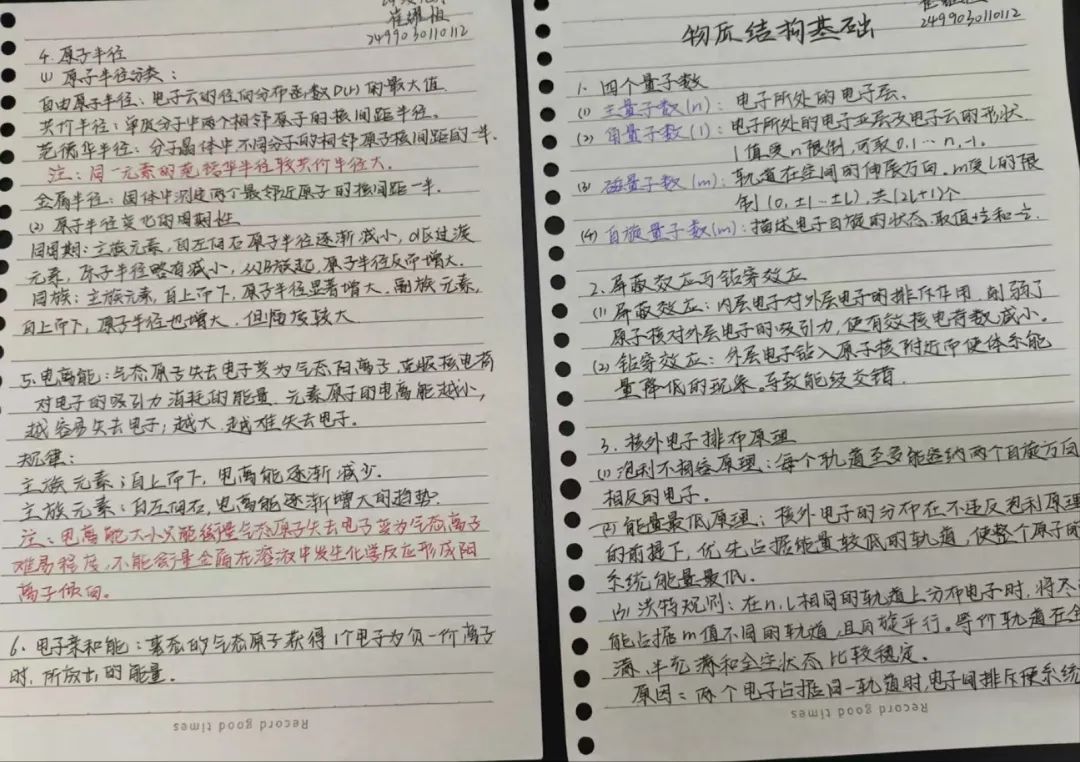 崔耀恒
2499030110112
4.原子半径
(1)原子半径分类:
自由原子半径:电子云的径向分布函数D(r)的最大值
共价半径:单质分子中两个相邻原子的核间距半径。
范德华半径:分子晶体中不同分子的相邻原子核间距的一半。
注:同一元素的范德华半径较共价半径大.
金属半径:固体中测定两个最邻近原子的核间距一半.
(2)原子半径变化的周期性
同周期:主族元素,自左向右原子半径逐渐减小,d区过渡
元素,原子半径略有减小,从IB族起,原子半径反而增大.
同族:主族元素,自上而下,原子半径显著增大.副族元素,
自上而下,原子半径也增大.但幅度较大
5.电离能:气态原子失去电子变为气态阳离子,克服核电荷
对电子的吸引力消耗的能量.元素原子的电离能越小,
越容易失去电子;越大.越难失去电子.
规律:
主族元素:自上而下,电离能逐渐减少.
主族元素:自左向右,电离能逐渐增大的趋势.
注:电离能大小只能衡量气态原子失去电子变为气态离子
难易程度,不能衡量金属在溶液中发生化学反应形成阳
离子倾向。
6.电子亲和能:基态的气态原子获得1个电子为负一价离子
时,所放出的能量.
Record good times
2499030110112
物质结构基础
1.四个量子数
(1)主量子数(n):电子所处的电子层.
(2)角量子数(l):电子所处的电子亚层及电子云的形状
l值受n限制,可取0,1…n,-1。
(3)磁量子数(m):轨道在空间的伸展方向.m受l的限
制(0,±1…±l),共(2l+1)个
(4)自旋量子数(m):描述电子自旋的状态.取值+½和-½.
2.屏蔽效应与钻穿效应
(1)屏蔽效应:内层电子对外层电子的排斥作用,削弱了
原子核对外层电子的吸引力,使有效核电荷数减小。
(2)钻穿效应:外层电子钻入原子核附近而使体系能
量降低的现象。导致能级交错.
3.核外电子排布原理
(1)泡利不相容原理:每个轨道至多能容纳两个自旋方向
相反的电子。
(2)能量最低原理:核外电子的分布在不违反泡利原理
的前提下,优先占据能量较低的轨道,使整个原子的
系统能量最低.
(3)洪特规则:在n,l相同的轨道上分布电子时,将尽
能占据m值不同的轨道,且自旋平行。等价轨道在全
满、半充满和全空状态比较稳定。
原因:两个电子占据同一轨道时,电子间排斥使系统
Record good times